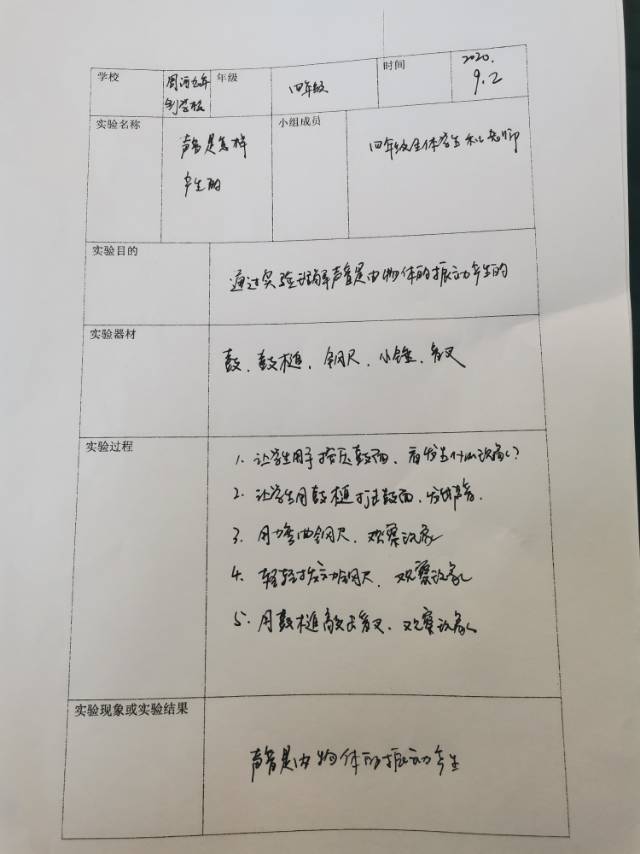 学校 周河九年制学校 年级 四年级 时间 2020.9.2
实验名称 声音是怎样产生的 小组成员 四年级全体学生和老师
实验目的 通过实验理解声音是由物体的振动产生的
实验器材 鼓、鼓槌、钢尺、小锤、音叉
实验过程
1. 让学生用手按压鼓面，看发生什么现象？
2. 让学生用鼓槌打击鼓面，发出声音.
3. 用力弯曲钢尺，观察现象
4. 轻轻拨动钢尺，观察现象
5. 用鼓槌敲击音叉，观察现象
实验现象或实验结果
声音是由物体的振动产生